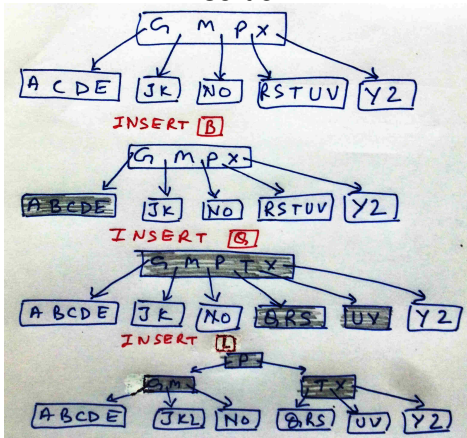 G M P X
A C D E JK NO RSTUV YZ
INSERT B
G M P X
ABCDE JK NO RSTUV YZ
INSERT Q
G M P T X
ABCDE JK NO QRS UV YZ
INSERT L
P
G M T X
ABCDE JKL NO QRS UV YZ